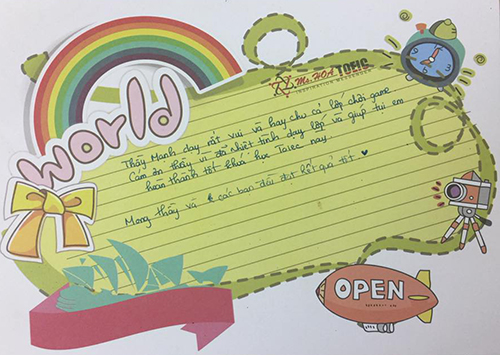 world
Ms. HOA TOEIC
INSPIRATION MESSENGER
Thầy Mạnh dạy rất vui và hay cho cả lớp chơi game
Cám ơn thầy vì đã nhiệt tình dạy lớp và giúp tụi em
hoàn thành tốt khoá học Toiec này.
Mong thầy và các bạn đạt kết quả tốt ♥
OPEN